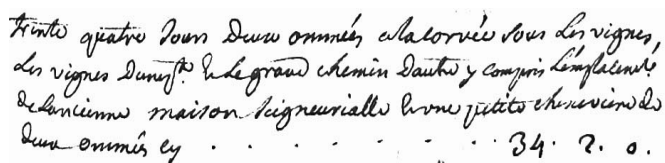 trente quatre Jours Deux ommées a la corvée sous Les vignes,
Les vignes D'une pt. & Le grand chemin D'autre y compris L'emplacement
de L'ancienne maison seigneurialle & une petite cheneviere de
deux ommées cy . . . . . . . . . 34. 2. 0.